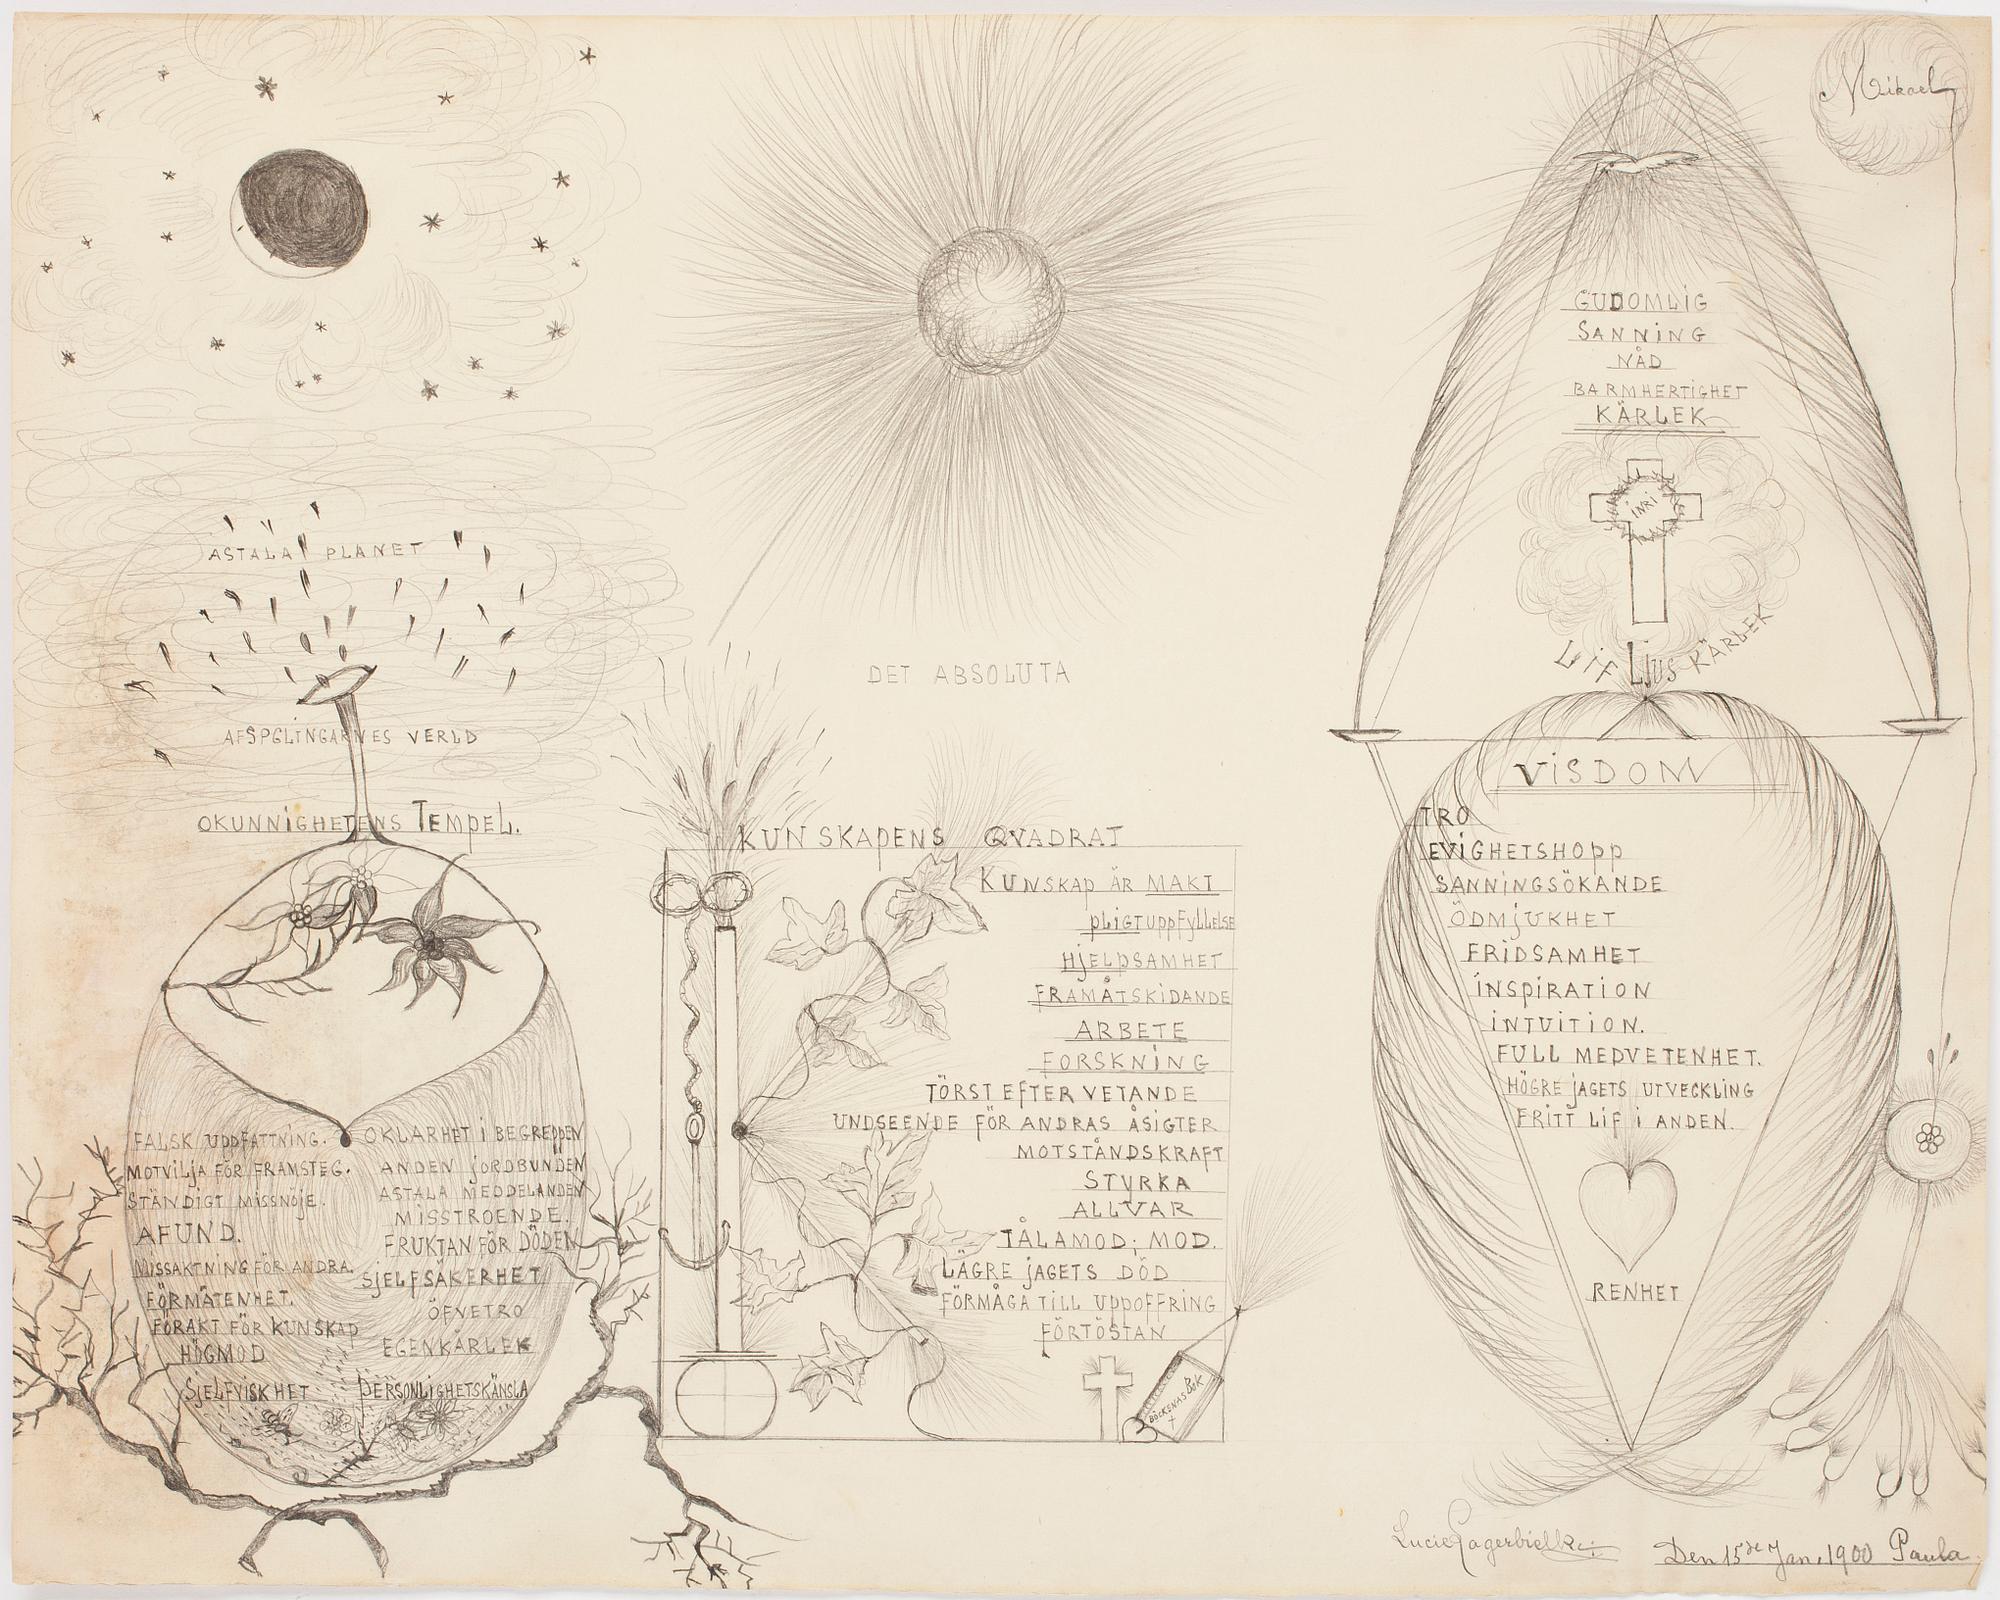 ASTALA PLANET
AFSPGLINGARNES VERLD
OKUNNIGHETENS TEMPEL.
FALSK UPPFATTNING.
MOTVILJA FÖR FRAMSTEG.
STÄNDIGT MISSNÖJE.
AFUND.
MISSAKTNING FÖR ANDRA.
FÖRMÄTENHET.
FÖRAKT FÖR KUNSKAP
HÖGMOD
SJELFVISKHET
OKLARHET I BEGREPPEN
ANDEN JORDBUNDEN
ASTALA MEDDELANDEN
MISSTROENDE.
FRUKTAN FÖR DÖDEN
SJELFSÄKERHET
ÖFVETRO
EGENKÄRLEK
PERSONLIGHETSKÄNSLA
DET ABSOLUTA
KUNSKAPENS QVADRAT
KUNSKAP ÄR MAKT
PLIGTUPPFYLLELSE
HJELPSAMHET
FRAMÅTSKIDANDE
ARBETE
FORSKNING
TÖRST EFTER VETANDE
UNDSEENDE FÖR ANDRAS ÅSIGTER
MOTSTÅNDSKRAFT
STYRKA
ALLVAR
TÅLAMOD; MOD.
LÄGRE JAGETS DÖD
FÖRMÅGA TILL UPPOFFRING
FÖRTÖSTAN
BÖCKENAS BOK
Mikael
GUDOMLIG
SANNING
NÅD
BARMHERTIGHET
KÄRLEK
INRI
LIF LJUS KÄRLEK
VISDOM
TRO
EVIGHETSHOPP
SANNINGSÖKANDE
ÖDMJUKHET
FRIDSAMHET
INSPIRATION
INTUITION.
FULL MEDVETENHET.
HÖGRE JAGETS UTVECKLING
FRITT LIF I ANDEN.
RENHET
Lucie Lagerbielke
Den 15de Jan. 1900 Paula